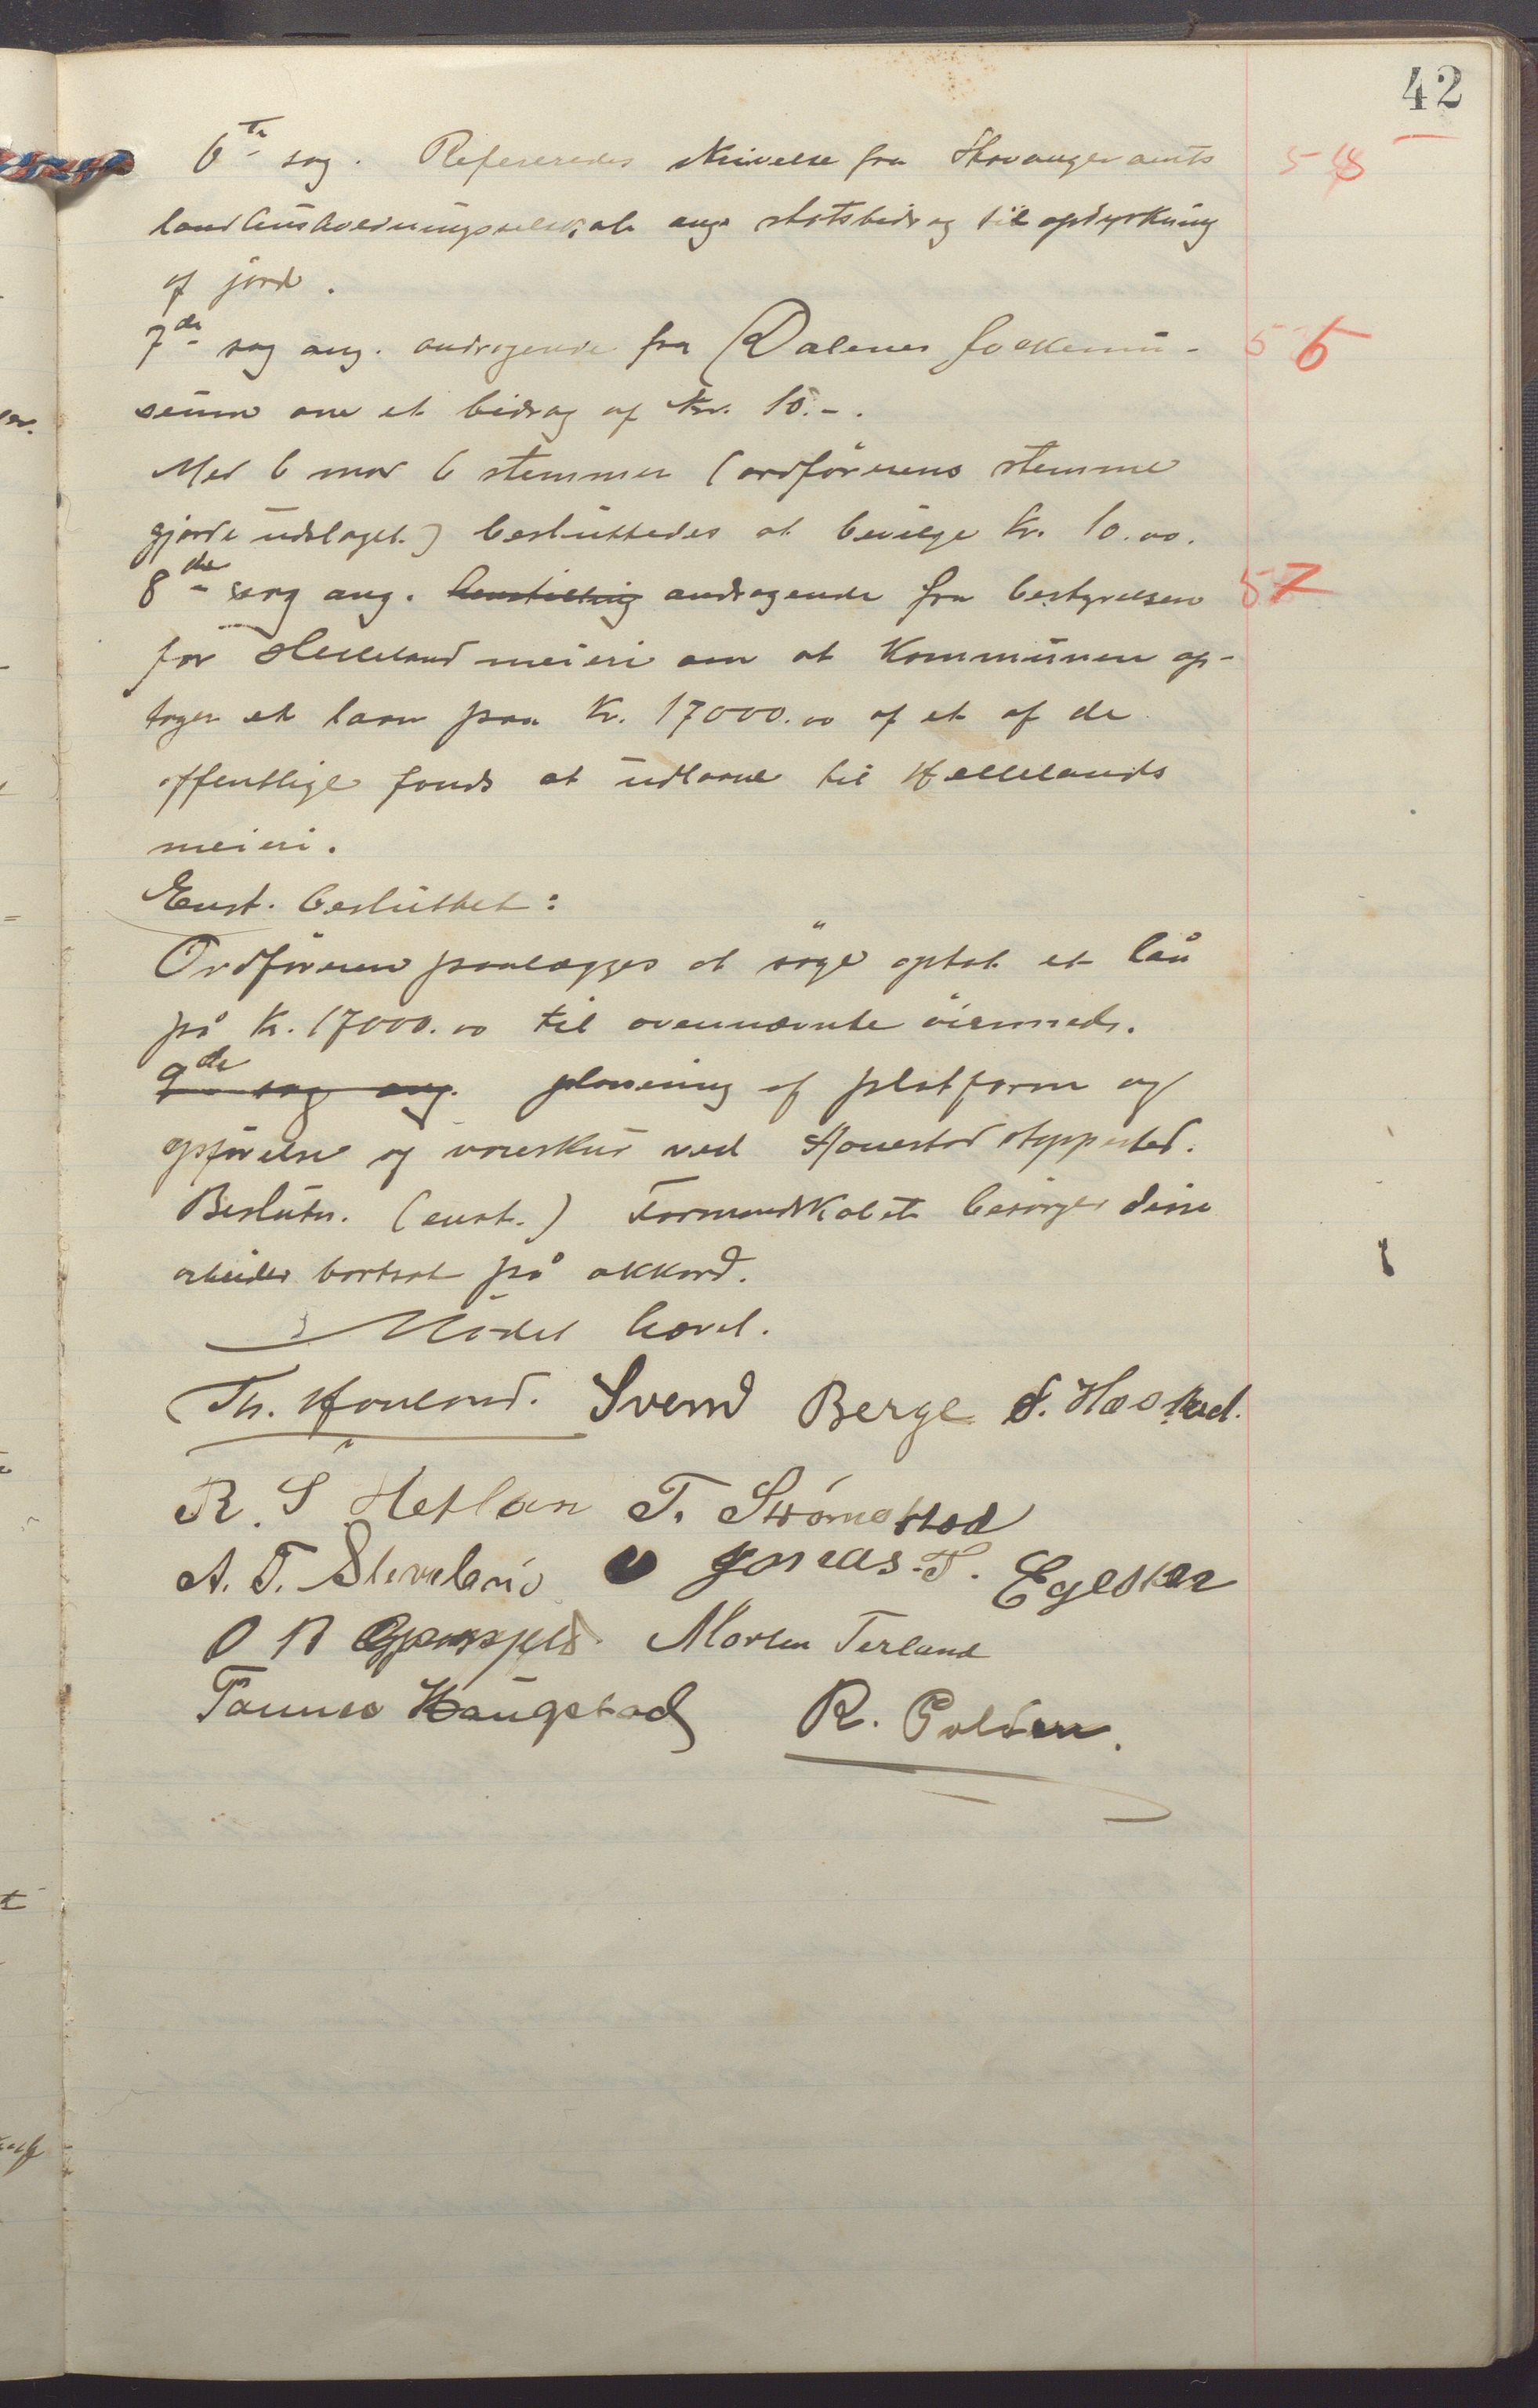 42
6te sag. Refereredes skrivelse fra Stavanger amts 55
landhusholdningsselskab ang. statsbidrag til opdyrkning
af jord.
7de sag ang. andragende fra Dalenes folkemu- 56
seum om et bidrag af kr. 10.-.
Med 6 mod 6 stemmer (ordförerens stemme
gjorde udslaget) besluttedes at bevilge kr. 10.00.
8de sag ang. henstilling andragende fra bestyrelsen 57
for Helleland meieri om at kommunen op-
tager et laan paa kr. 17000.00 af et af de
offentlige fonds at udlaane til Hellelands
meieri.
Enst. besluttet:
Ordföreren paalægges at söge optat et lån
på kr. 17000.00 til ovennævnte öiemeds.
9de sag ang. planering af platform og
opförelse af vareskur ved Hauestad stoppested.
Beslutn. (enst.) Formandskabet besörger disse
arbeider bortsat på akkord.
Mödet hævet.
Th. Houland. Svend Berge S. Hæstad.
R. S Hetlan T. Strömstad
A. T. Sleveland Jonas. T. Egelsker
O R Morten Terland
Tønnes Haugstad R.